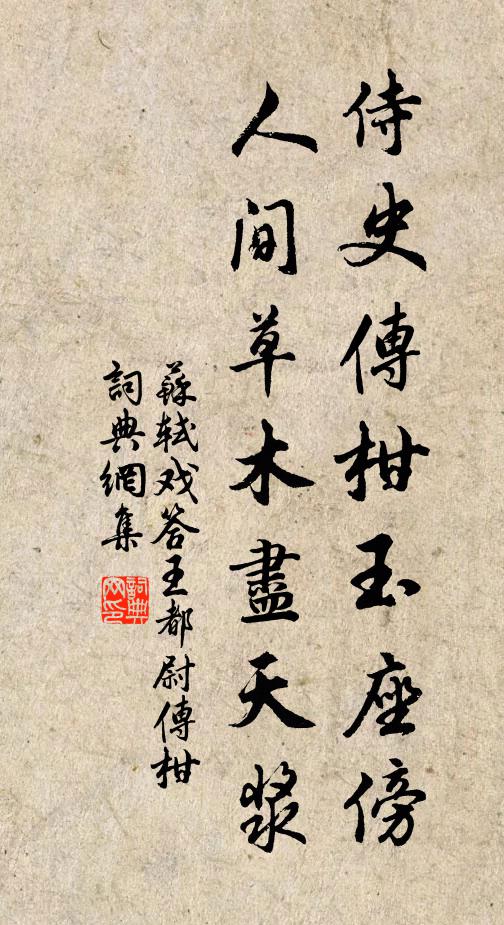 侍史傳柑玉座傍
人间草木盡天漿
蘇軾戏答王都尉傳柑
詞典網集
詞典网印